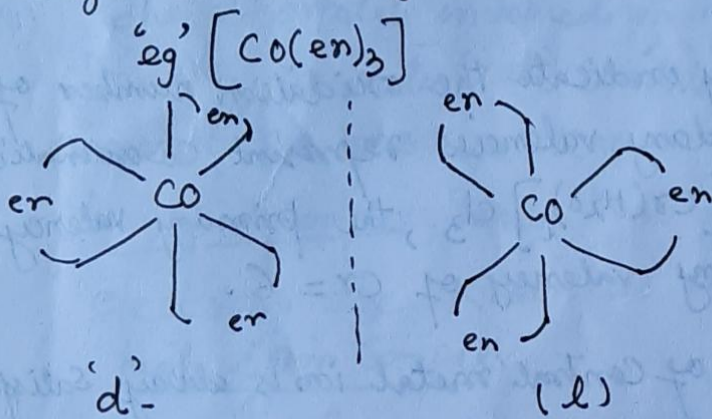 'eg' [CO(en)₃]
en
en
en
CO
en
CO
en
en
'd'-
(l)